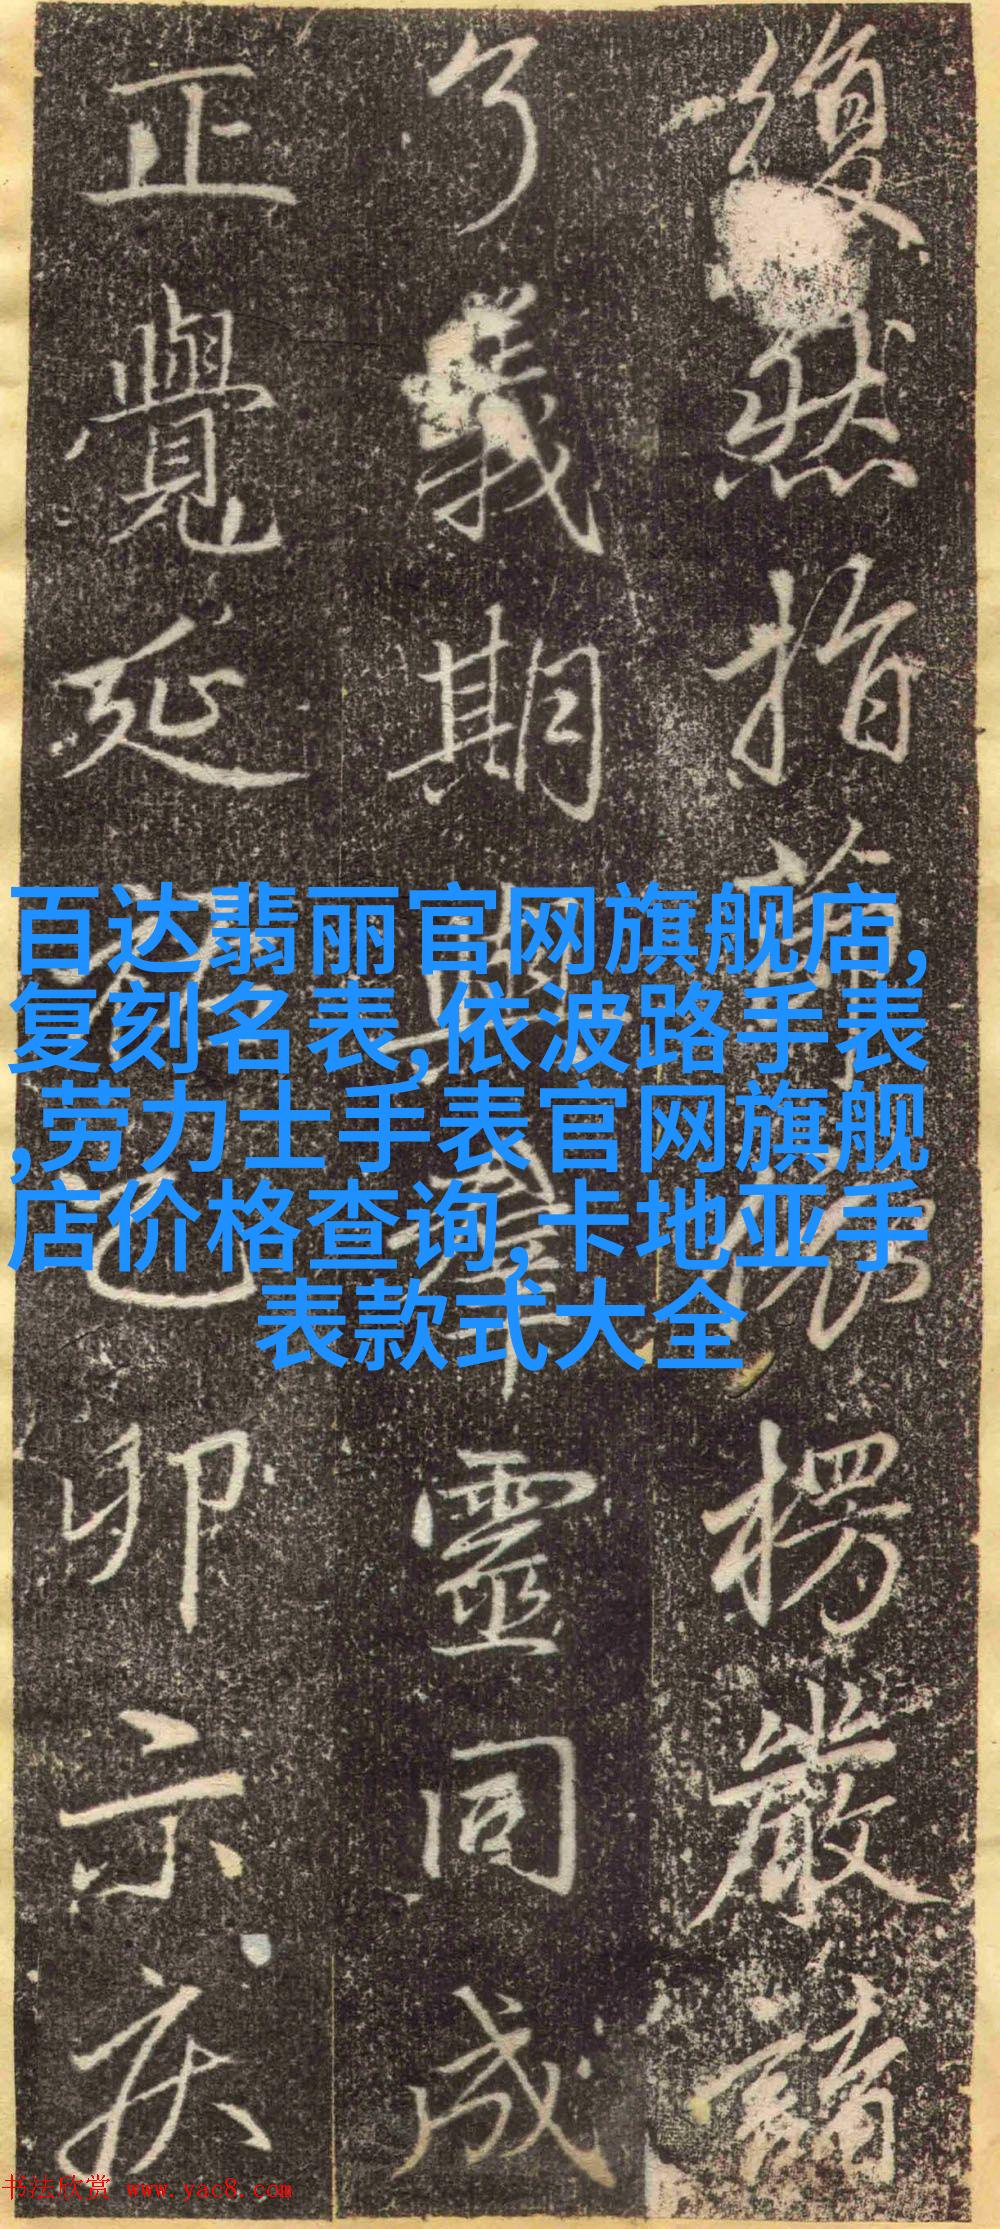 復然指楞嚴
了義期與羣靈同成
正覺延
卯示
百达翡丽官网旗舰店,
复刻名表,依波路手表
,劳力士手表官网旗舰
店价格查询,卡地亚手
表款式大全
书法欣赏 www.yac8.com